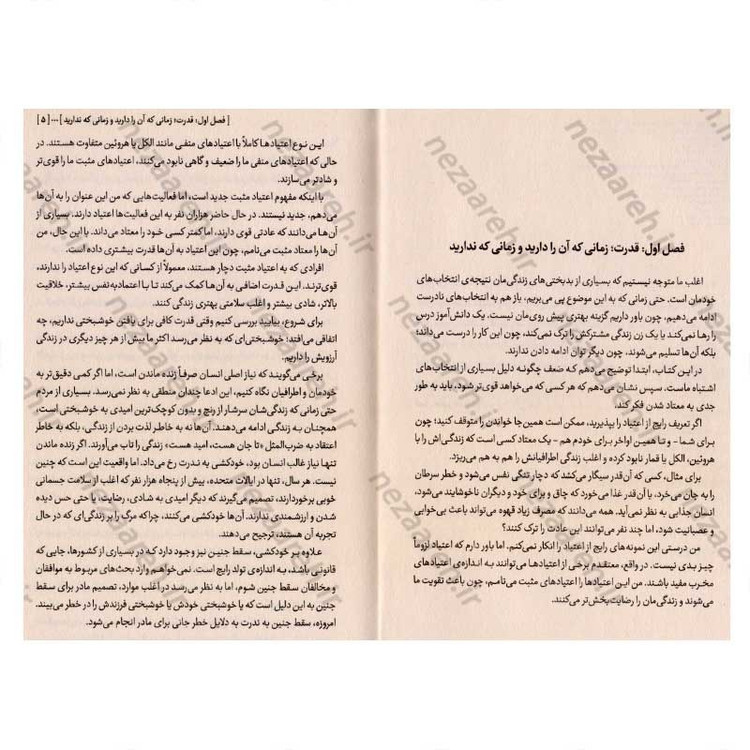 فصل اول: قدرت؛ زمانی که آن را دارید و زمانی که ندارید
اغلب ما متوجه نیستیم که بسیاری از بدبختی‌های زندگی‌مان نتیجه‌ی انتخاب‌های
خودمان است. حتی زمانی که به این موضوع پی می‌بریم، باز هم به انتخاب‌های نادرست
ادامه می‌دهیم، چون باور داریم گزینه بهتری پیش روی‌مان نیست. یک دانش‌آموز درس
را رها نمی‌کند یا یک زن زندگی مشترکش را ترک نمی‌کند، چون این کار را درست می‌داند؛
بلکه آن‌ها تسلیم می‌شوند، چون دیگر توان ادامه دادن ندارند.
در این کتاب، ابتدا توضیح می‌دهم که ضعف چگونه دلیل بسیاری از انتخاب‌های
اشتباه ماست. سپس نشان می‌دهم که هر کسی که می‌خواهد قوی‌تر شود، باید به طور
جدی به معتاد شدن فکر کند.
اگر تعریف رایج از اعتیاد را بپذیرید، ممکن است همین‌جا خواندن را متوقف کنید؛ چون
برای شما - و تا همین اواخر برای خودم هم - یک معتاد کسی است که زندگی‌اش را با
هروئین، الکل یا قمار نابود کرده و اغلب زندگی اطرافیانش را هم به هم می‌ریزد.
برای مثال، کسی که آن‌قدر سیگار می‌کشد که دچار تنگی نفس می‌شود و خطر سرطان
را به جان می‌خرد، یا آن‌قدر غذا می‌خورد که چاق و برای خود و دیگران ناخوشایند می‌شود،
انسان جذابی به نظر نمی‌آید. همه می‌دانند که مصرف زیاد قهوه می‌تواند باعث بی‌خوابی
و عصبانیت شود، اما چند نفر می‌توانند این عادت را ترک کنند؟
من درستی این نمونه‌های رایج از اعتیاد را انکار نمی‌کنم. اما باور دارم که اعتیاد لزوماً
چیز بدی نیست. در واقع، معتقدم برخی از اعتیادها می‌توانند به اندازه‌ی اعتیادهای
مخرب مفید باشند. من این اعتیادها را اعتیادهای مثبت می‌نامم، چون باعث تقویت ما
می‌شوند و زندگی‌مان را رضایت‌بخش‌تر می‌کنند.
[ فصل اول: قدرت؛ زمانی که آن را دارید و زمانی که ندارید ]...[ ۵ ]
این نوع اعتیادها کاملاً با اعتیادهای منفی مانند الکل یا هروئین متفاوت هستند. در
حالی که اعتیادهای منفی ما را ضعیف و گاهی نابود می‌کنند، اعتیادهای مثبت ما را قوی‌تر
و شادتر می‌سازند.
با اینکه مفهوم اعتیاد مثبت جدید است، اما فعالیت‌هایی که من این عنوان را به آن‌ها
می‌دهم، جدید نیستند. در حال حاضر هزاران نفر به این فعالیت‌ها اعتیاد دارند. بسیاری از
آن‌ها می‌دانند که عادتی قوی دارند، اما کمتر کسی خود را معتاد می‌داند. با این حال، من
آن‌ها را معتاد مثبت می‌نامم، چون این اعتیاد به آن‌ها قدرت بیشتری داده است.
افرادی که به اعتیاد مثبت دچار هستند، معمولاً از کسانی که این نوع اعتیاد را ندارند،
قوی‌ترند. این قدرت اضافی به آن‌ها کمک می‌کند تا با اعتمادبه‌نفس بیشتر، خلاقیت
بالاتر، شادی بیشتر و اغلب سلامتی بهتری زندگی کنند.
برای شروع، بیایید بررسی کنیم وقتی قدرت کافی برای یافتن خوشبختی نداریم، چه
اتفاقی می‌افتد؛ خوشبختی‌ای که به نظر می‌رسد اکثر ما بیش از هر چیز دیگری در زندگی
آرزویش را داریم.
برخی می‌گویند که نیاز اصلی انسان صرفاً زنده ماندن است، اما اگر کمی دقیق‌تر به
خودمان و اطرافیان نگاه کنیم، این ادعا چندان منطقی به نظر نمی‌رسد. بسیاری از مردم
حتی زمانی که زندگی‌شان سرشار از رنج و بدون کوچک‌ترین امیدی به خوشبختی است،
همچنان به زندگی ادامه می‌دهند. آن‌ها نه به خاطر لذت بردن از زندگی، بلکه به خاطر
اعتقاد به ضرب‌المثل «تا جان هست، امید هست» زندگی را تاب می‌آورند. اگر زنده ماندن
تنها نیاز غالب انسان بود، خودکشی به ندرت رخ می‌داد. اما واقعیت این است که چنین
نیست. هر سال، تنها در ایالات متحده، بیش از پنجاه هزار نفر که اغلب از سلامت جسمانی
خوبی برخوردارند، تصمیم می‌گیرند که دیگر امیدی به شادی، رضایت، یا حتی حس دیده
شدن و ارزشمندی ندارند. آن‌ها خودکشی می‌کنند، چراکه مرگ را بر زندگی‌ای که در حال
تجربه آن هستند، ترجیح می‌دهند.
علاوه بر خودکشی، سقط جنین نیز وجود دارد که در بسیاری از کشورها، جایی که
قانونی باشد، به اندازه‌ی تولد رایج است. نمی‌خواهم وارد بحث‌های مربوط به موافقان
و مخالفان سقط جنین شوم، اما به نظر می‌رسد در اغلب موارد، تصمیم مادر برای سقط
جنین به این دلیل است که یا خوشبختی خودش یا خوشبختی فرزندش را در خطر می‌بیند.
امروزه، سقط جنین به ندرت به دلایل خطر جانی برای مادر انجام می‌شود.
nezaareh.ir